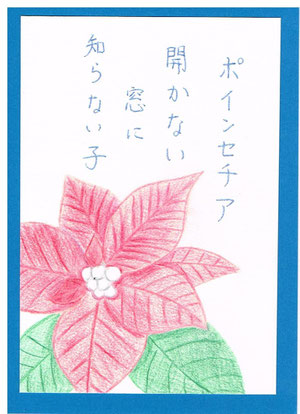 ポインセチア
開かない
窓に
知らない子